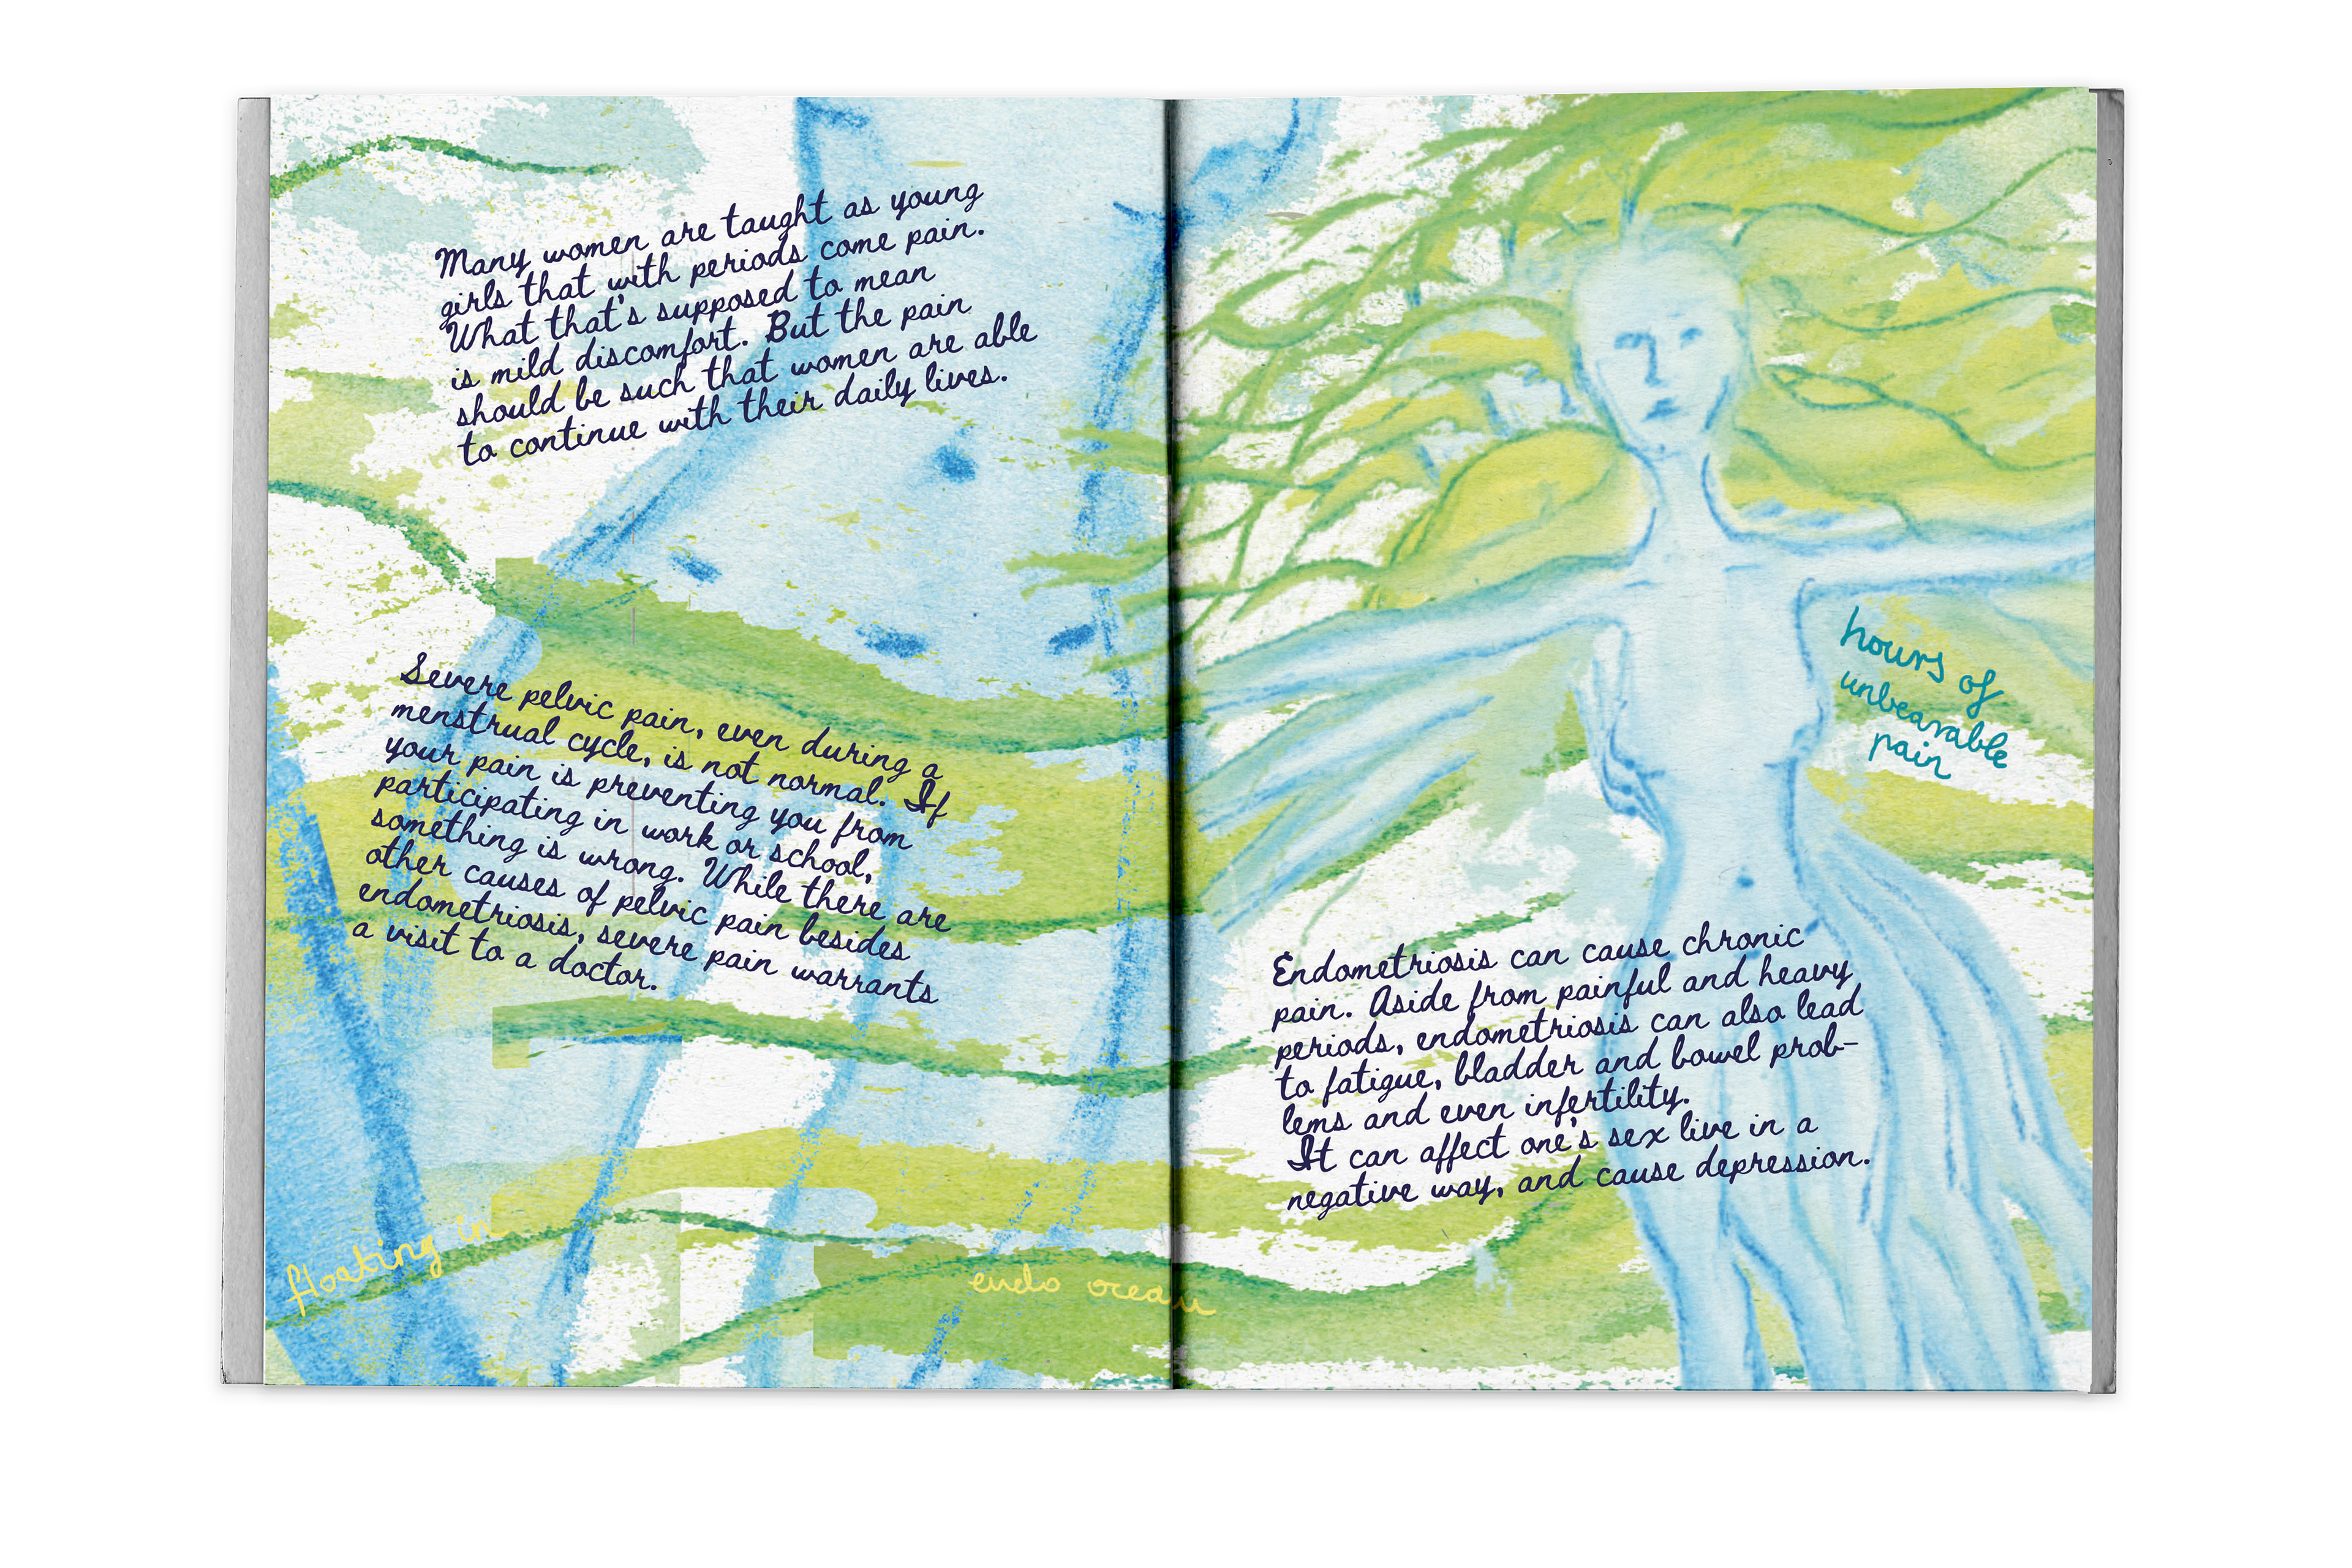 Many women are taught as young
girls that with periods come pain.
What that's supposed to mean
is mild discomfort. But the pain
should be such that women are able
to continue with their daily lives.
Severe pelvic pain, even during a
menstrual cycle, is not normal. If
your pain is preventing you from
participating in work or school,
something is wrong. While there are
other causes of pelvic pain besides
endometriosis, severe pain warrants
a visit to a doctor.
floating in
endo ocean
hours of
unbearable
pain
Endometriosis can cause chronic
pain. Aside from painful and heavy
periods, endometriosis can also lead
to fatigue, bladder and bowel prob-
lems and even infertility.
It can affect one's sex live in a
negative way, and cause depression.